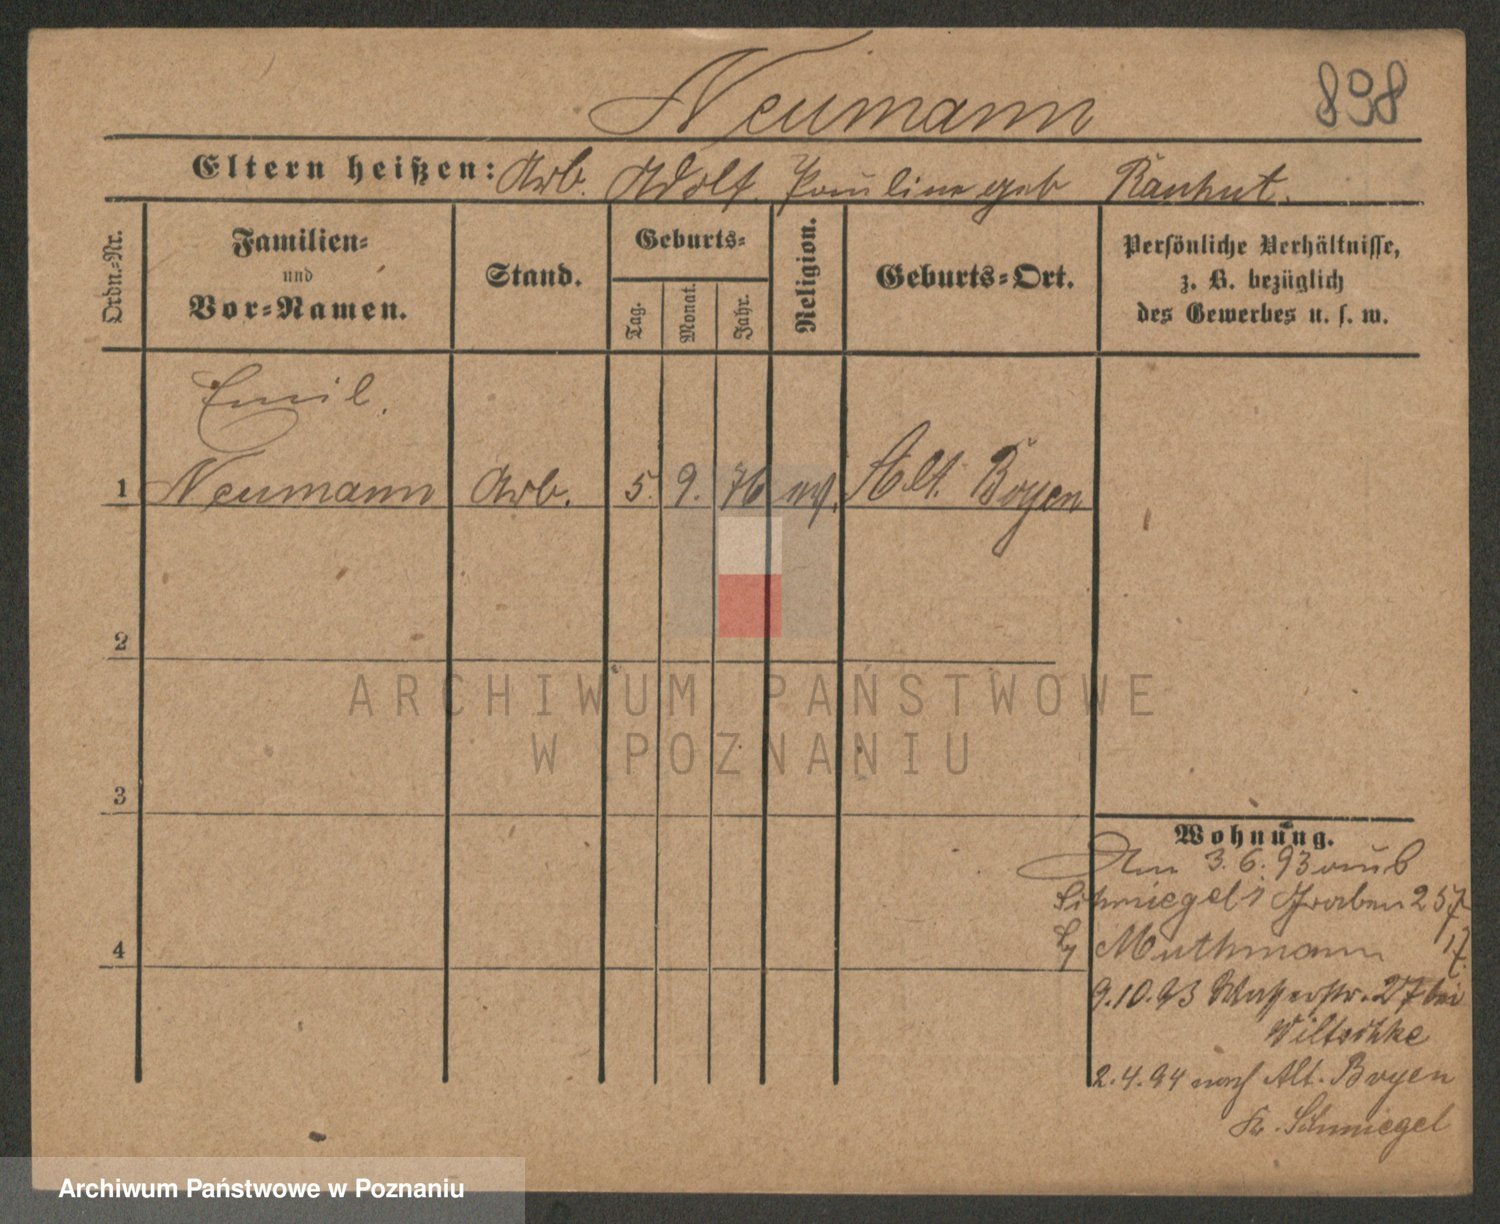 Neumann
898
Eltern heißen: Arb. Adolf. Pauline geb Rauhut.
Ordn.-Nr.
Familien-
und
Vor-Namen.
Stand.
Geburts-
Tag.
Monat.
Jahr.
Religion.
Geburts-Ort.
Persönliche Verhältnisse,
z. B. bezüglich
des Gewerbes u. s. w.
Emil.
1 Neumann Arb. 5. 9. 76 Alt. Boyen
2
ARCHIWUM PAŃSTWOWE
W POZNANIU
3
Wohnung.
3.6.93
Schmiegel Graben 257
Muthmann
4
9.10.93 Wasserstr. 27 bei
Wiltschke
2.4.94 nach Alt. Boyen
Kr. Schmiegel
Archiwum Państwowe w Poznaniu